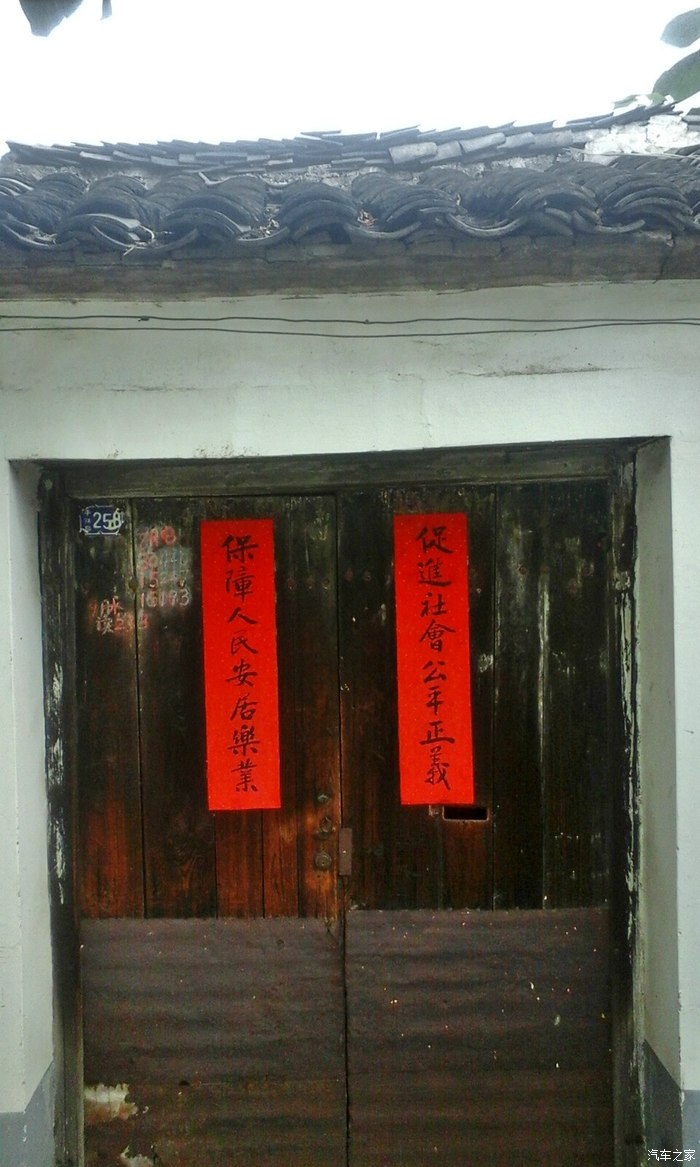 促進社會公平正義
保障人民安居樂業
258
汽车之家